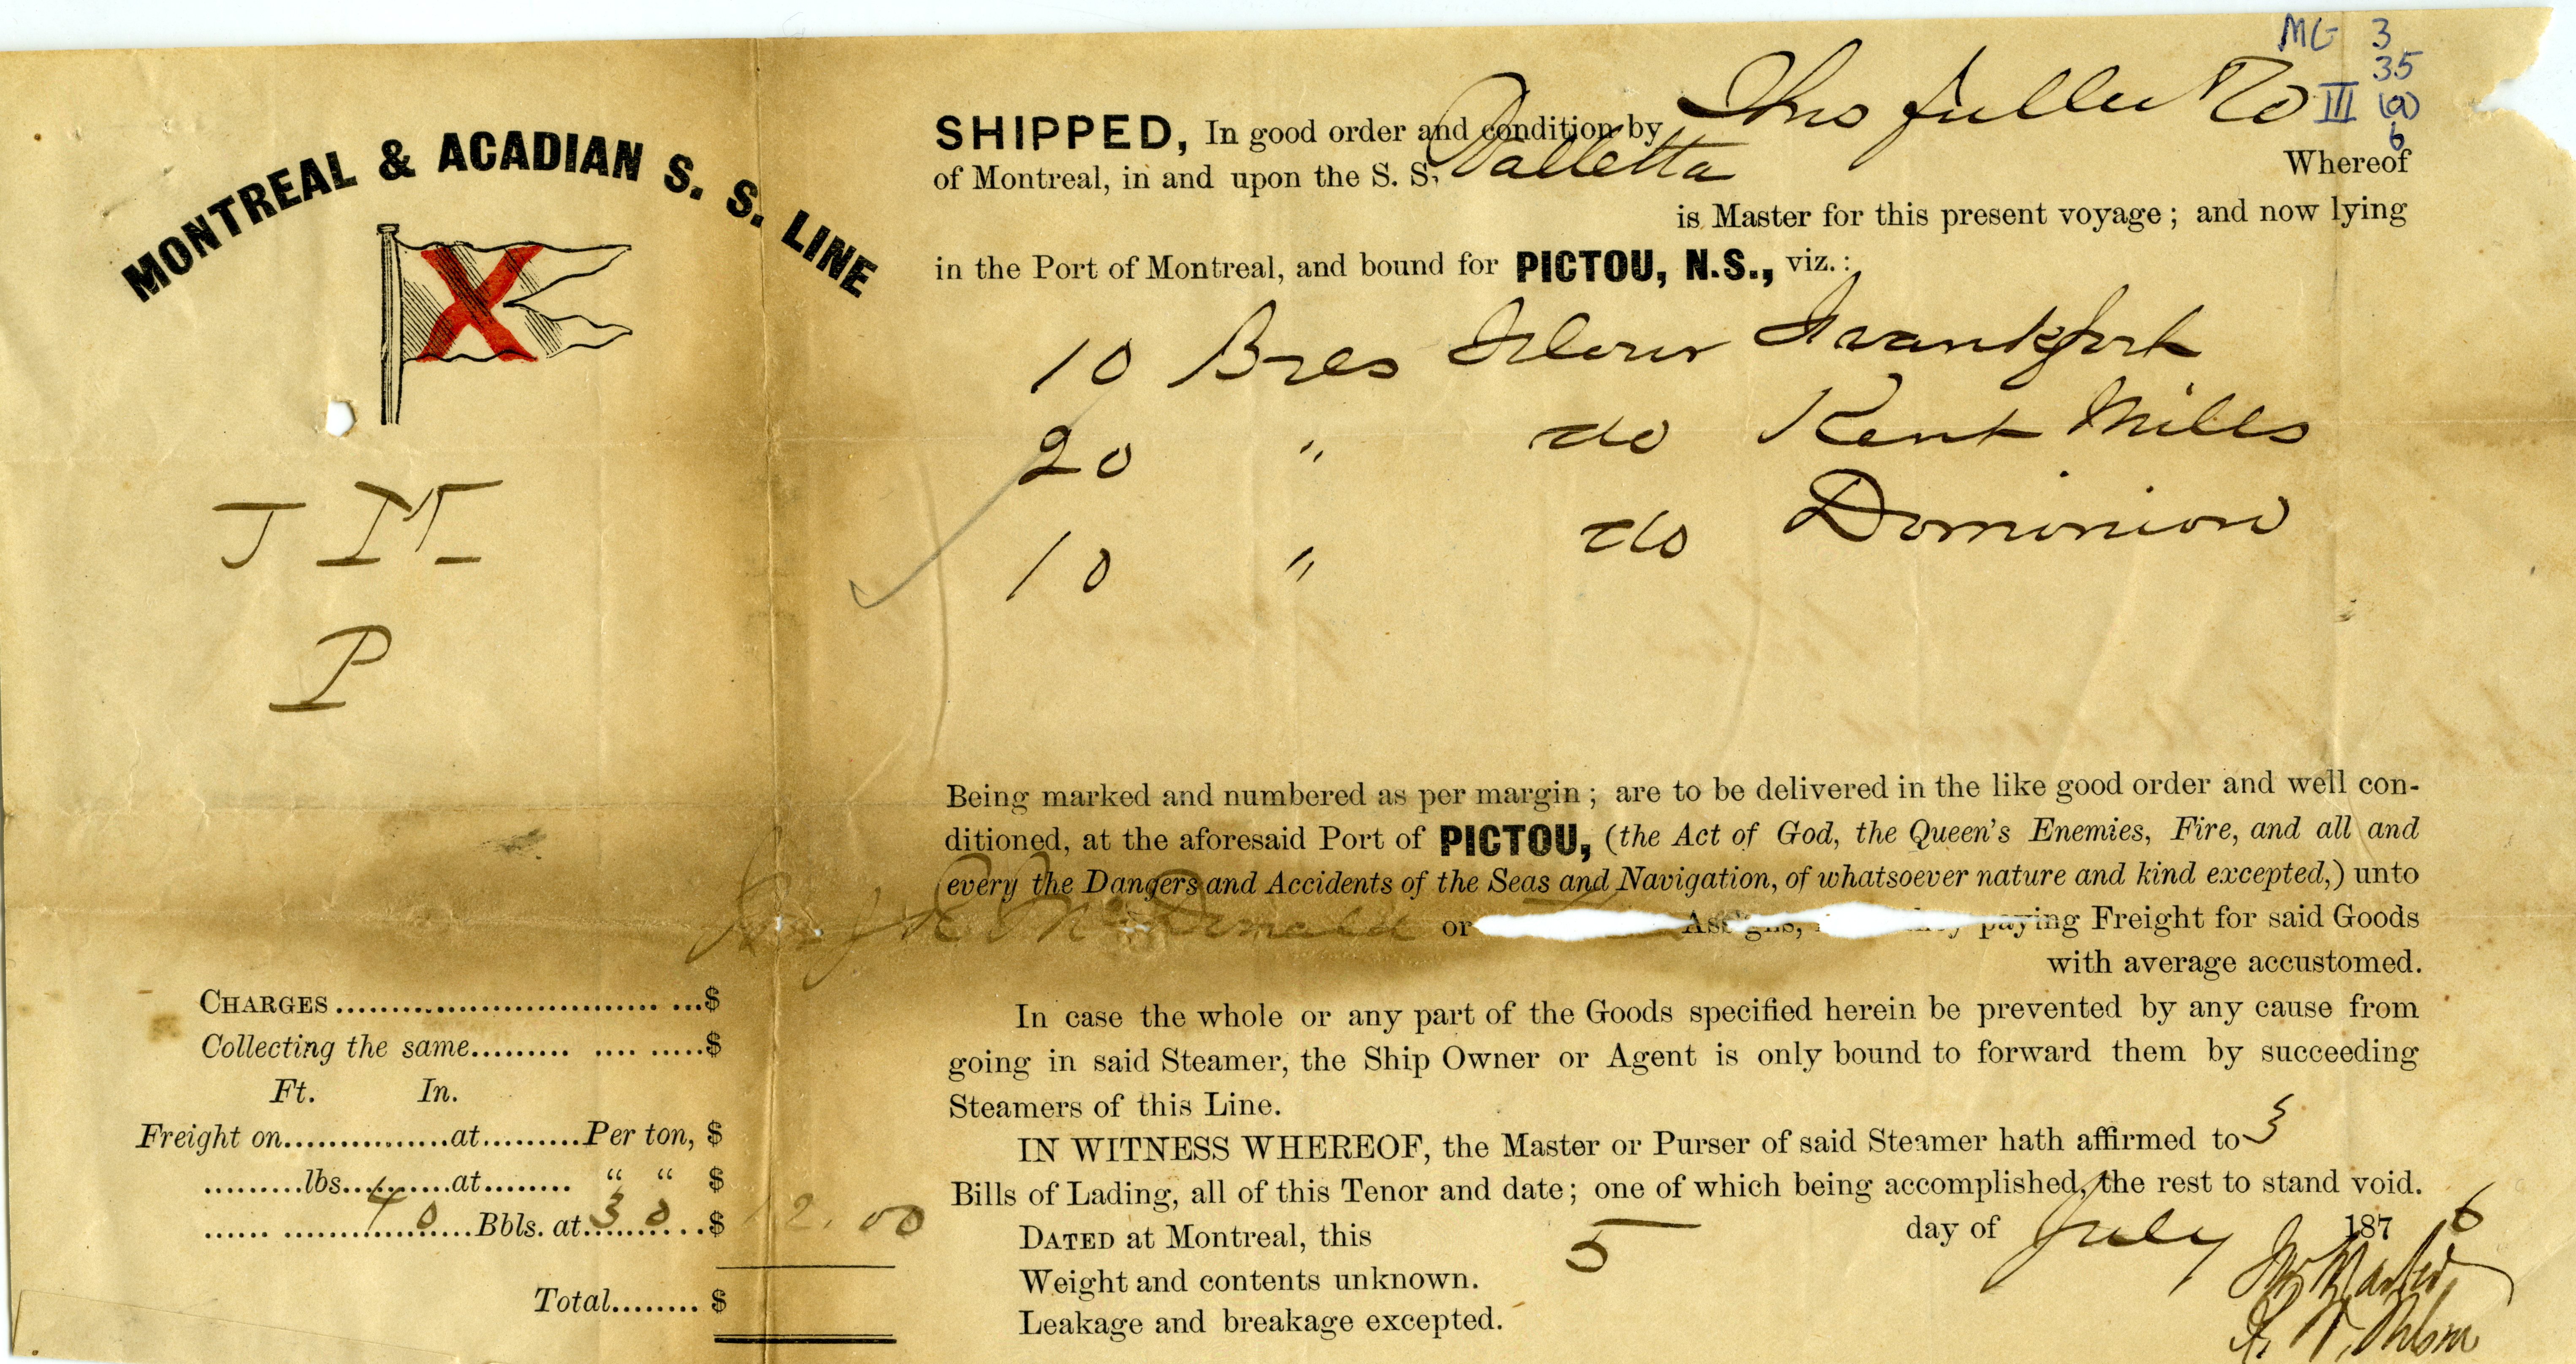 MG 3
35
III (a)
6
MONTREAL & ACADIAN S. S. LINE
SHIPPED, In good order and condition by Thos fuller Co
of Montreal, in and upon the S. S. Valletta Whereof
is Master for this present voyage; and now lying
in the Port of Montreal, and bound for PICTOU, N.S., viz.:
10 Brls Flour Frankfort
20 " do Kent Mills
10 " do Dominion
J M
P
Being marked and numbered as per margin; are to be delivered in the like good order and well con-
ditioned, at the aforesaid Port of PICTOU, (the Act of God, the Queen's Enemies, Fire, and all and
every the Dangers and Accidents of the Seas and Navigation, of whatsoever nature and kind excepted,) unto
McDonald or Assigns, they paying Freight for said Goods
with average accustomed.
In case the whole or any part of the Goods specified herein be prevented by any cause from
going in said Steamer, the Ship Owner or Agent is only bound to forward them by succeeding
Steamers of this Line.
IN WITNESS WHEREOF, the Master or Purser of said Steamer hath affirmed to 3
Bills of Lading, all of this Tenor and date; one of which being accomplished, the rest to stand void.
DATED at Montreal, this 5 day of July 1876
Weight and contents unknown.
Leakage and breakage excepted.
CHARGES .................................. ...$
Collecting the same......... .... .....$
Ft. In.
Freight on................at.........Per ton, $
.........lbs..........at........ " " $
...... 40 Bbls. at 30 $ 12.00
Total........ $